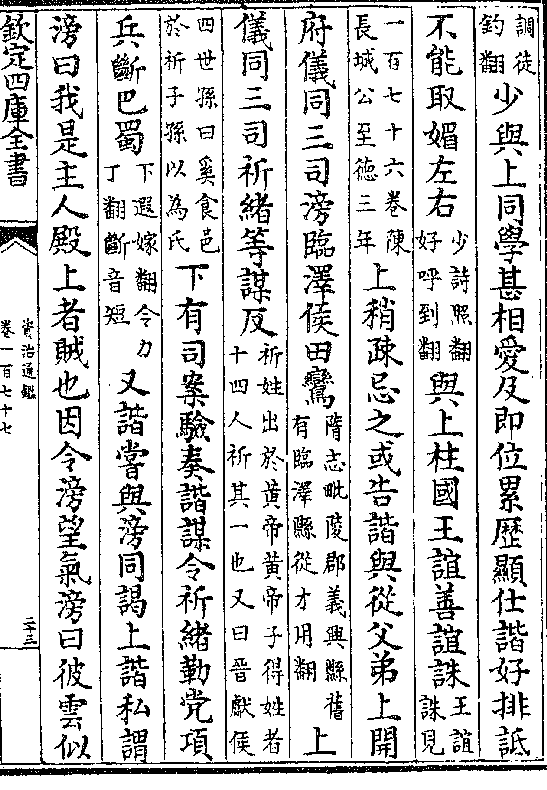 調徒釣翻少與上同學甚相愛及即位累歴顯仕諧好排詆
不能取媚左右少詩照翻好呼到翻與上柱國王誼善誼誅王誼誅見
一百七十六卷陳長城公至德三年上稍疎忌之或告諧與從父弟上開
府儀同三司滂臨澤侯田鸞隋志毗陵郡義興縣舊有臨澤縣從才用翻上
儀同三司祈緒等謀反祈姓出於黄帝黄帝子得姓者十四人祈其一也又曰晉獻侯
四世孫曰奚食邑於祈子孫以為氏下有司案驗奏諧謀令祈緒勒党項
兵斷巴蜀下遐嫁翻令力丁翻斷音短又諧嘗與滂同謁上諧私謂
滂曰我是主人殿上者賊也因令滂望氣滂曰彼雲似
欽定四庫全書
資治通鑑
卷一百七十七
二三